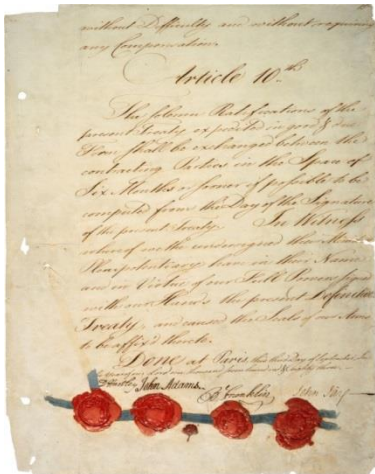 without Difficulty and without requiring
any Compensation.
Article 10th
The solemn Ratifications of the
present Treaty expedited in good & due
Form shall be exchanged between the
contracting Parties in the Space of
Six Months or sooner if possible to be
computed from the Day of the Signature
of the present Treaty. In Witness
whereof we the undersigned their Ministers
Plenipotentiary have in their Name
and in Virtue of our Full Powers signed
with our Hands the present Definitive
Treaty, and caused the Seals of our Arms
to be affix'd thereto.
Done at Paris, this third Day of September, In
D Hartley John Adams B Franklin John Jay